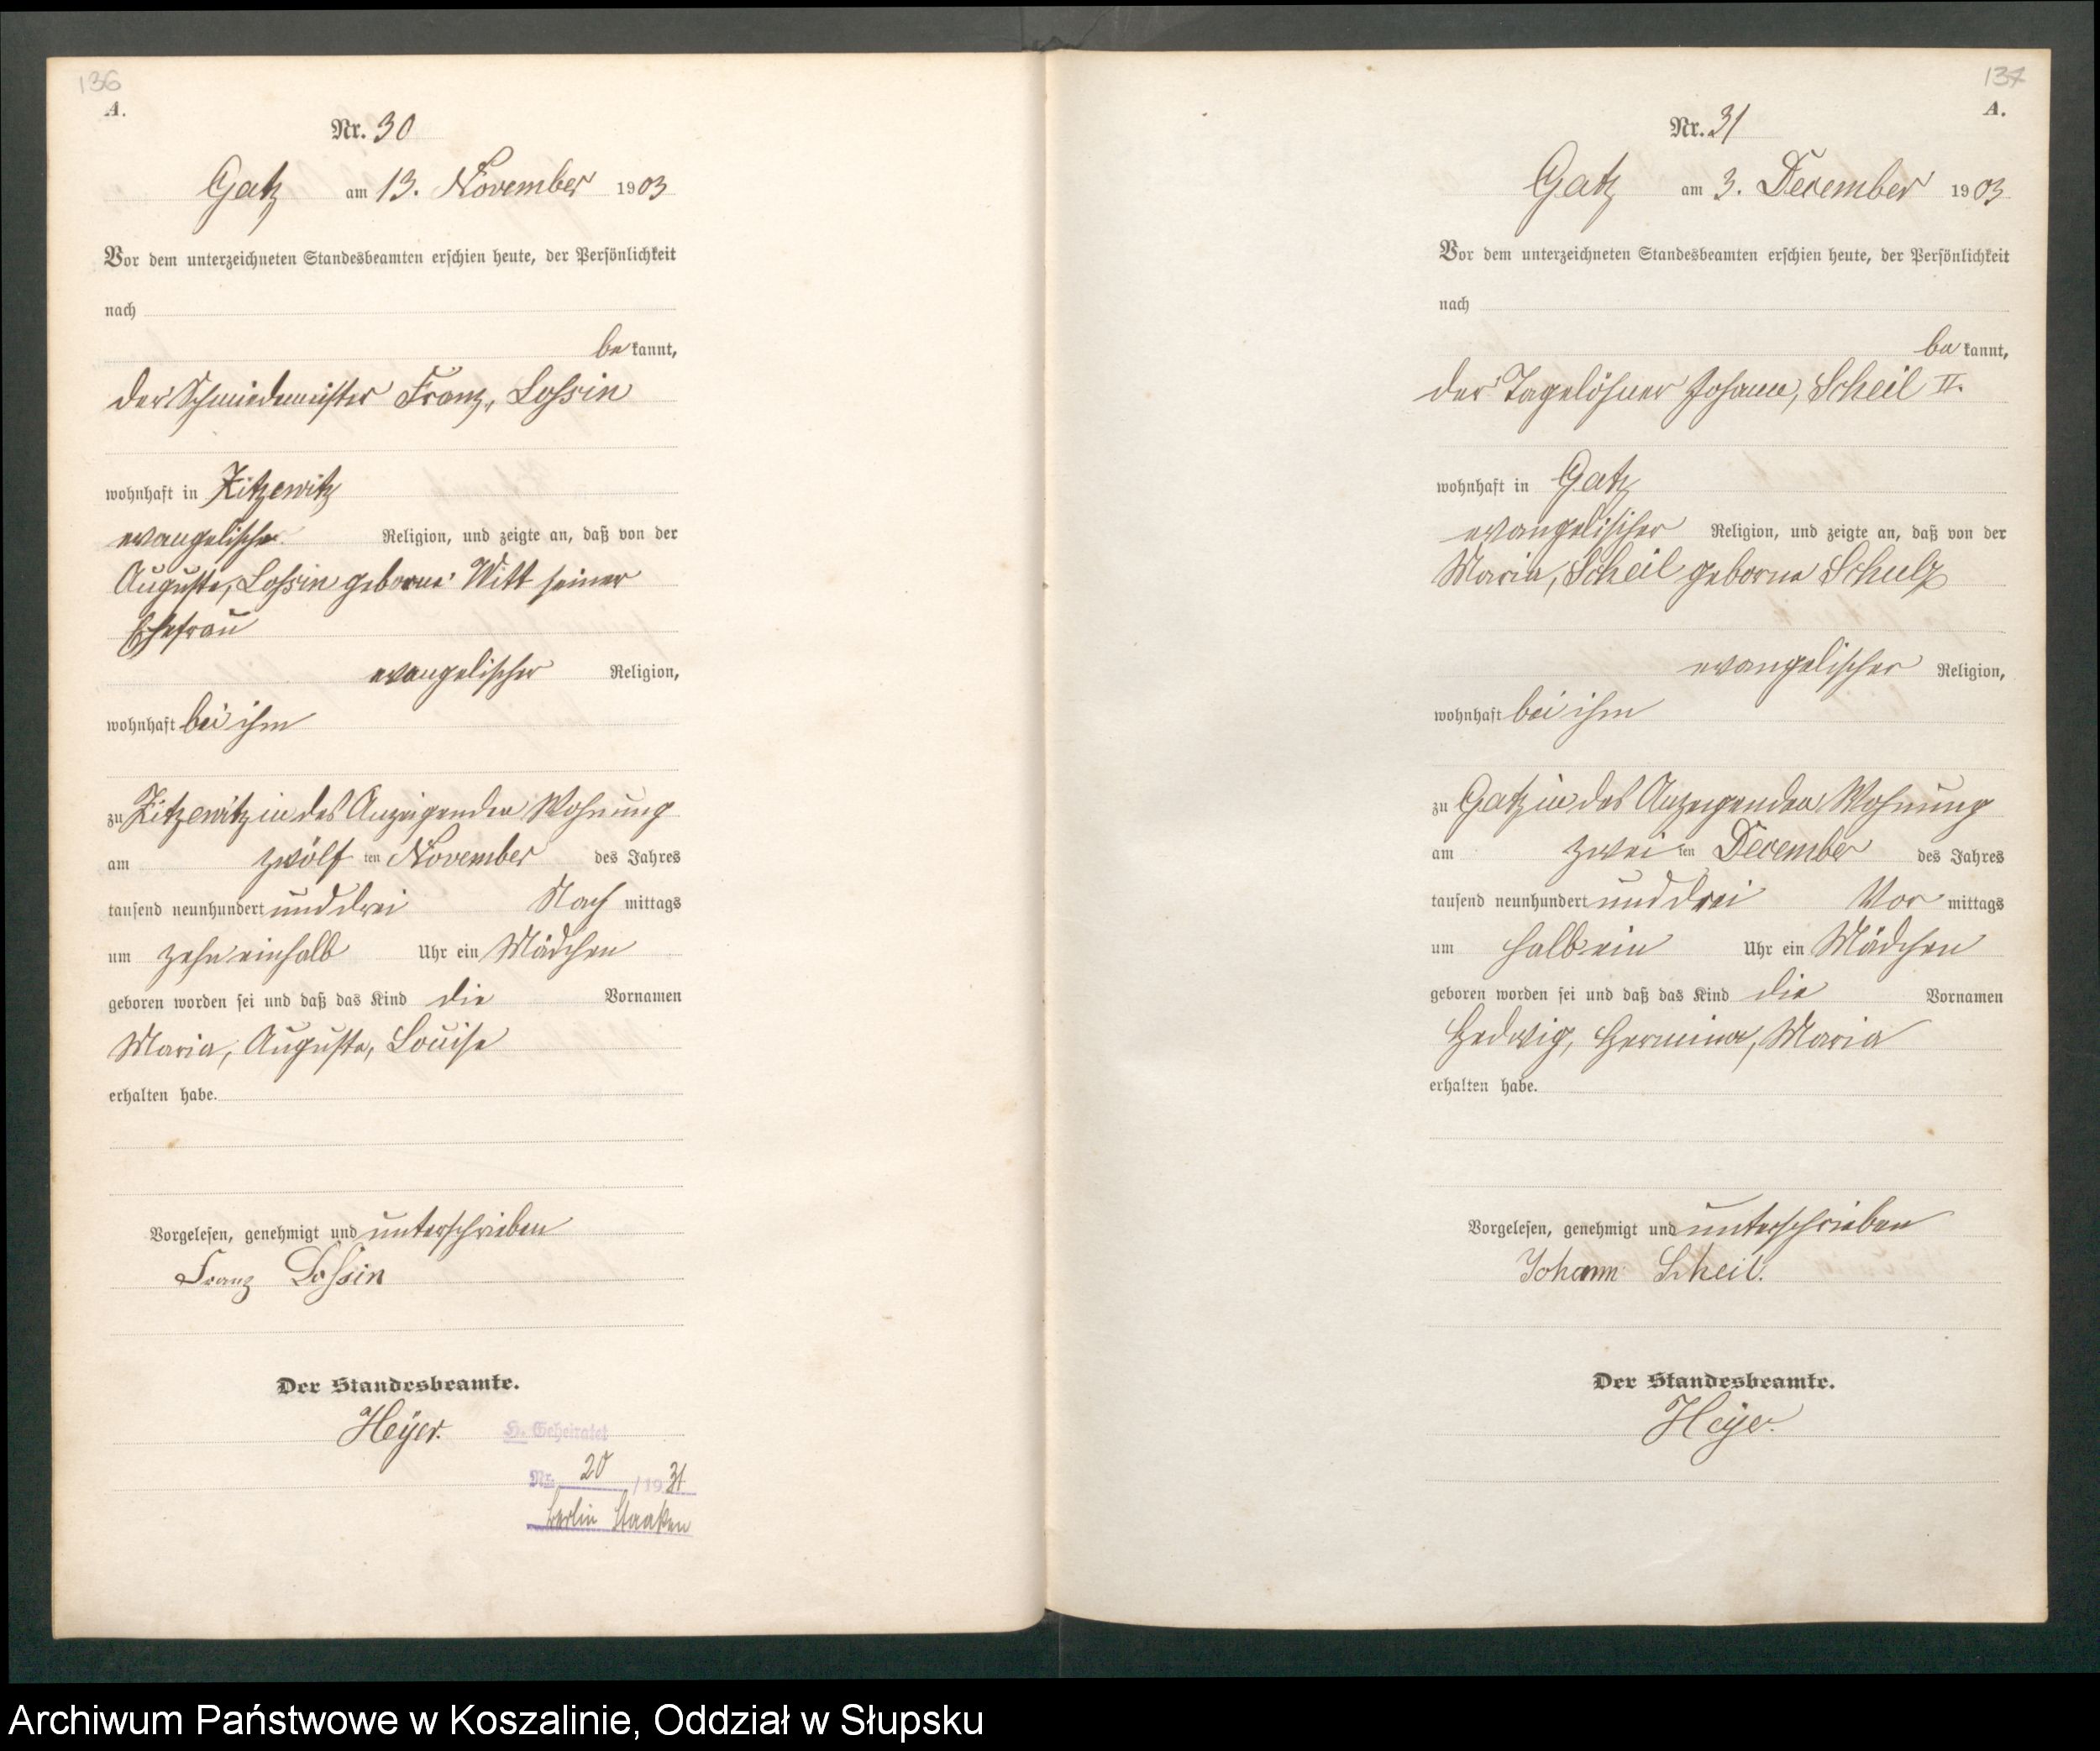 136
A.
Nr. 30
Gatz am 13. November 1903
Vor dem unterzeichneten Standesbeamten erschien heute, der Persönlichkeit
nach
be kannt,
der Schmiedemeister Franz, Lossin
wohnhaft in Zitzewitz
evangelischer Religion, und zeigte an, daß von der
Auguste, Lossin geborne Witt seiner
Ehefrau
evangelischer Religion,
wohnhaft bei ihm
zu Zitzewitz in des Anzeigenden Wohnung
am zwölf ten November des Jahres
tausend neunhundert und drei Nach mittags
um zehneinhalb Uhr ein Mädchen
geboren worden sei und daß das Kind die Vornamen
Maria, Auguste, Louise
erhalten habe.
Vorgelesen, genehmigt und unterschrieben
Franz Lossin
Der Standesbeamte.
Heyer.
H. Geheiratet
Nr. 20 / 1931
Berlin Staaken
137
A.
Nr. 31
Gatz am 3. Dezember 1903
Vor dem unterzeichneten Standesbeamten erschien heute, der Persönlichkeit
nach
be kannt,
der Tagelöhner Johann, Scheil II.
wohnhaft in Gatz
evangelischer Religion, und zeigte an, daß von der
Maria, Scheil geborne Schulz
evangelischer Religion,
wohnhaft bei ihm
zu Gatz in des Anzeigenden Wohnung
am zwei ten Dezember des Jahres
tausend neunhundert und drei Vor mittags
um halb ein Uhr ein Mädchen
geboren worden sei und daß das Kind die Vornamen
Hedwig, Hermina, Maria
erhalten habe.
Vorgelesen, genehmigt und unterschrieben
Johann Scheil.
Der Standesbeamte.
Heyer.
Archiwum Państwowe w Koszalinie, Oddział w Słupsku